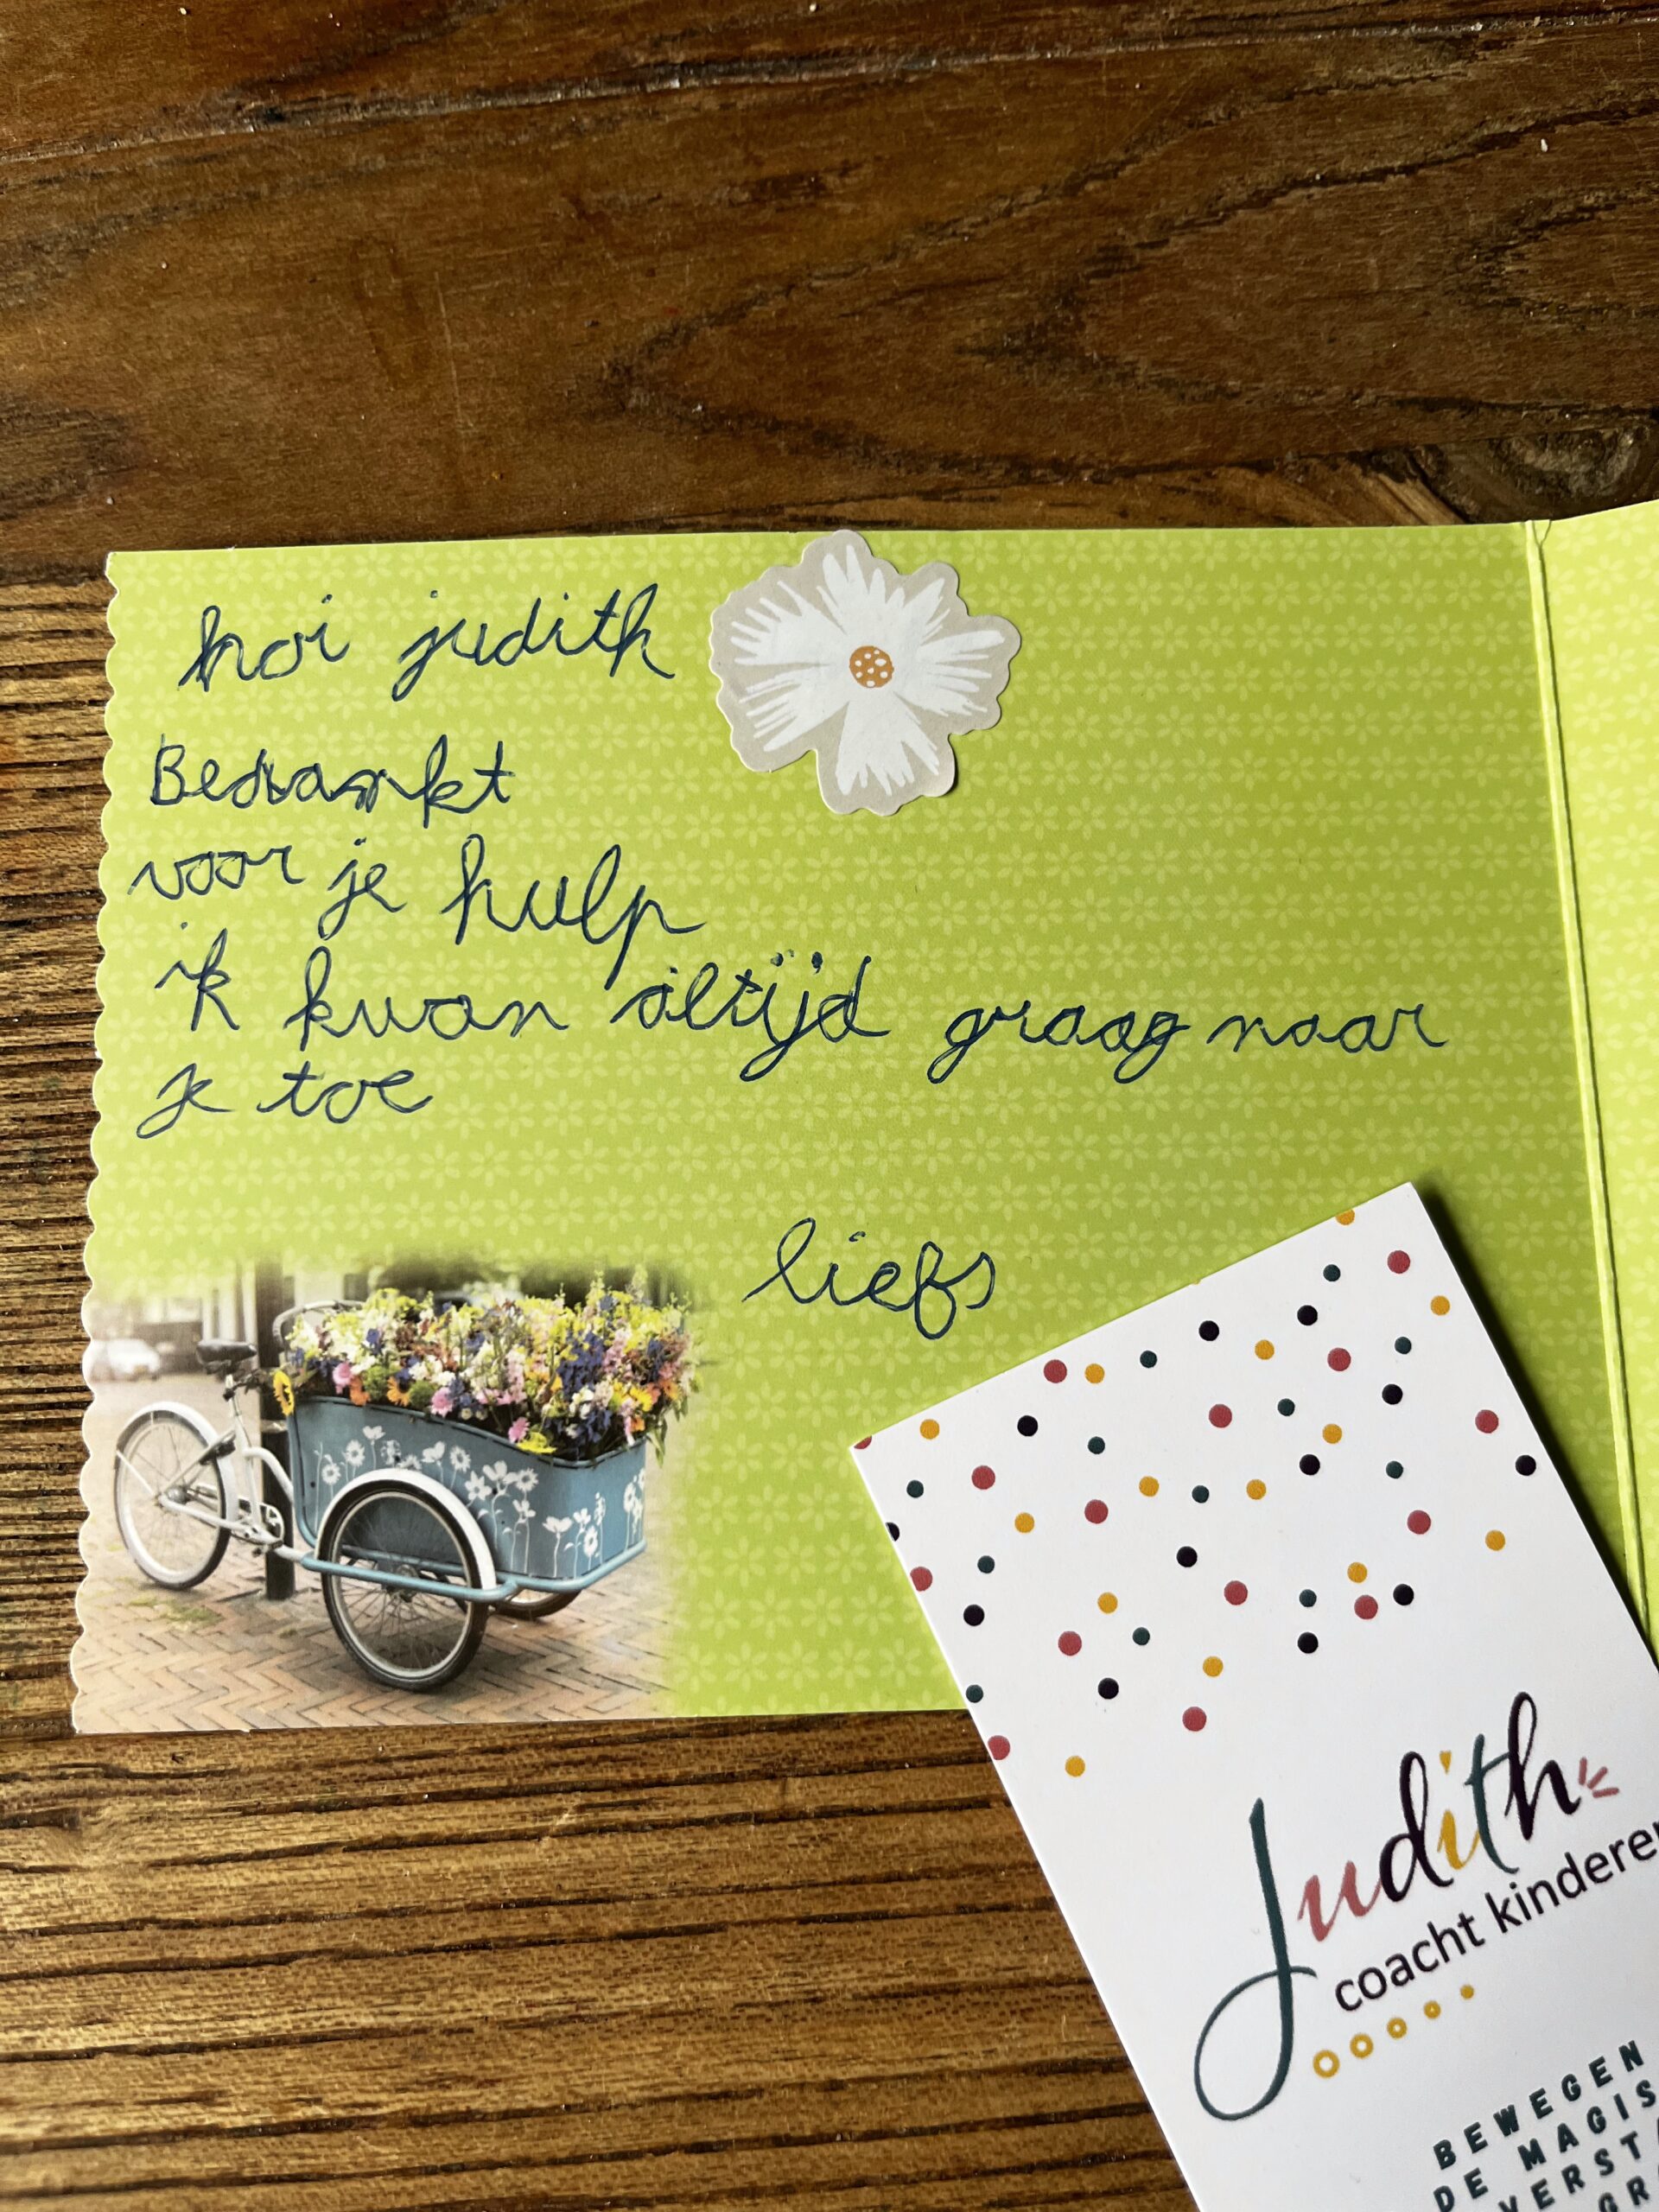 hoi judith
Bedankt
voor je hulp
ik kwan altijd graag naar
je toe
liefs
Judith
coacht kinderen
BEWEGEN
DE MAGIS
VERST
GR